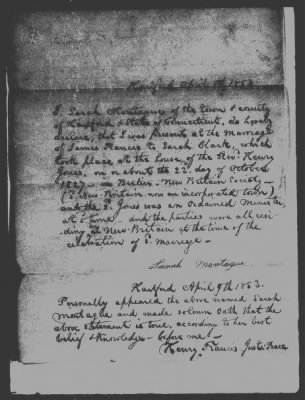 Hartford April 9th 1853
I Sarah Montague of the town & county
of Hartford & State of Connecticut, do hereby
declare, that I was present at the marriage
of James Francis to Sarah Clark, which
took place at the house of the Revd Henry
Jones, on or about the 22d day of October
1827 — in Berlin — New Britain Society —
(sd New Britain now an incorporated town)
and the sd Jones was an Ordained Minister
at sd time — and the parties were all resi-
ding in New-Britain at the time of the
celebration of sd marrege —
Sarah Montague
Hartford April 9th 1853.
Personally appeared the above named Sarah
Montague and made solemn oath that the
above statement is true, according to her best
belief & Knowledge — before me —
Henry Francis Justice Peace